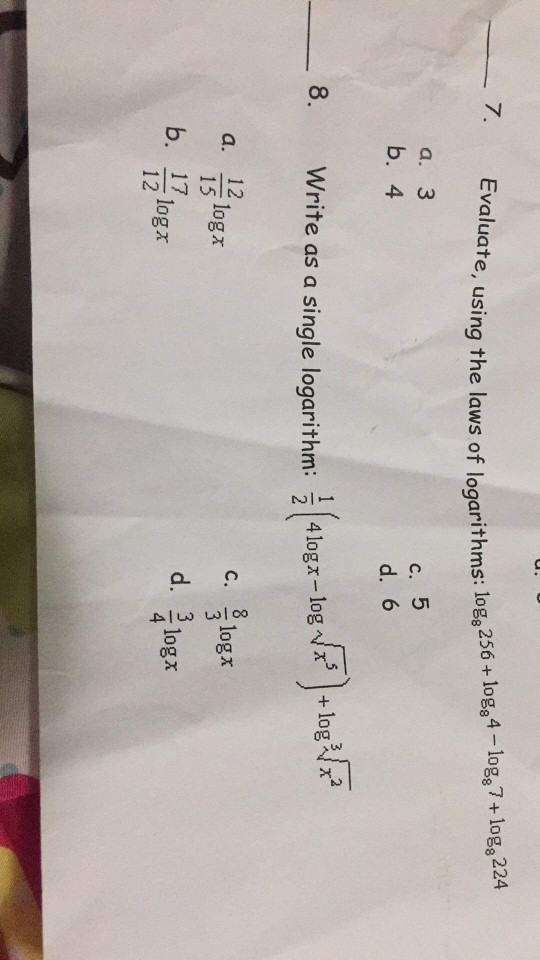 7. Evaluate, using the laws of logarithms: log₈ 256 + log₈ 4 − log₈ 7 + log₈ 224
a. 3 c. 5
b. 4 d. 6
8. Write as a single logarithm: 1/2(4 log x − log √(x⁵)) + log ∛(x²)
a. 12/15 log x c. 8/3 log x
b. 17/12 log x d. 3/4 log x